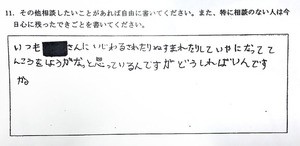 11. その他相談したいことがあれば自由に書いてください。また、特に相談のない人は今
日心に残ったできごとを書いてください。
いつも さんにいじわるされたりぬすまれたりしていやになってて
んこうをしようがなっと思っているんですがどうしればいんです
か。